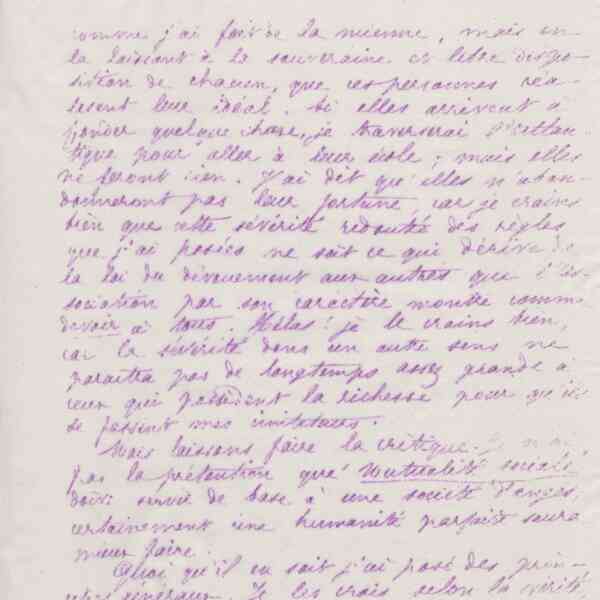 comme j'ai fait de la mienne, mais en
la laissant à la souveraine et libre dispo-
sition de chacun, que ces personnes réa-
lisent leur idéal. Si elles arrivent à
fonder quelque chose, je traverserai l'Atlan-
tique pour aller à leur école ; mais elles
ne feront rien. J'ai dit qu'elles n'aban-
donneront pas leur fortune, car je crains
bien que cette sévérité redoutée des règles
que j'ai posées ne soit ce qui dérive de
la loi du dévouement aux autres que l'As-
sociation par son caractère montre comme
devoir à tous. Hélas! je le crains bien,
car la sévérité dans un autre sens ne
paraîtra pas de longtemps assez grande à
ceux qui possèdent la richesse pour qu'ils
se fassent mes imitateurs.
Mais laissons faire la critique. Je n'ai
pas la prétention que Mutualité sociale
doive servir de base à une société d'anges,
certainement une humanité parfaite saura
mieux faire.
Quoi qu'il en soit j'ai posé des prin-
cipes généraux. Je les crois selon la vérité,